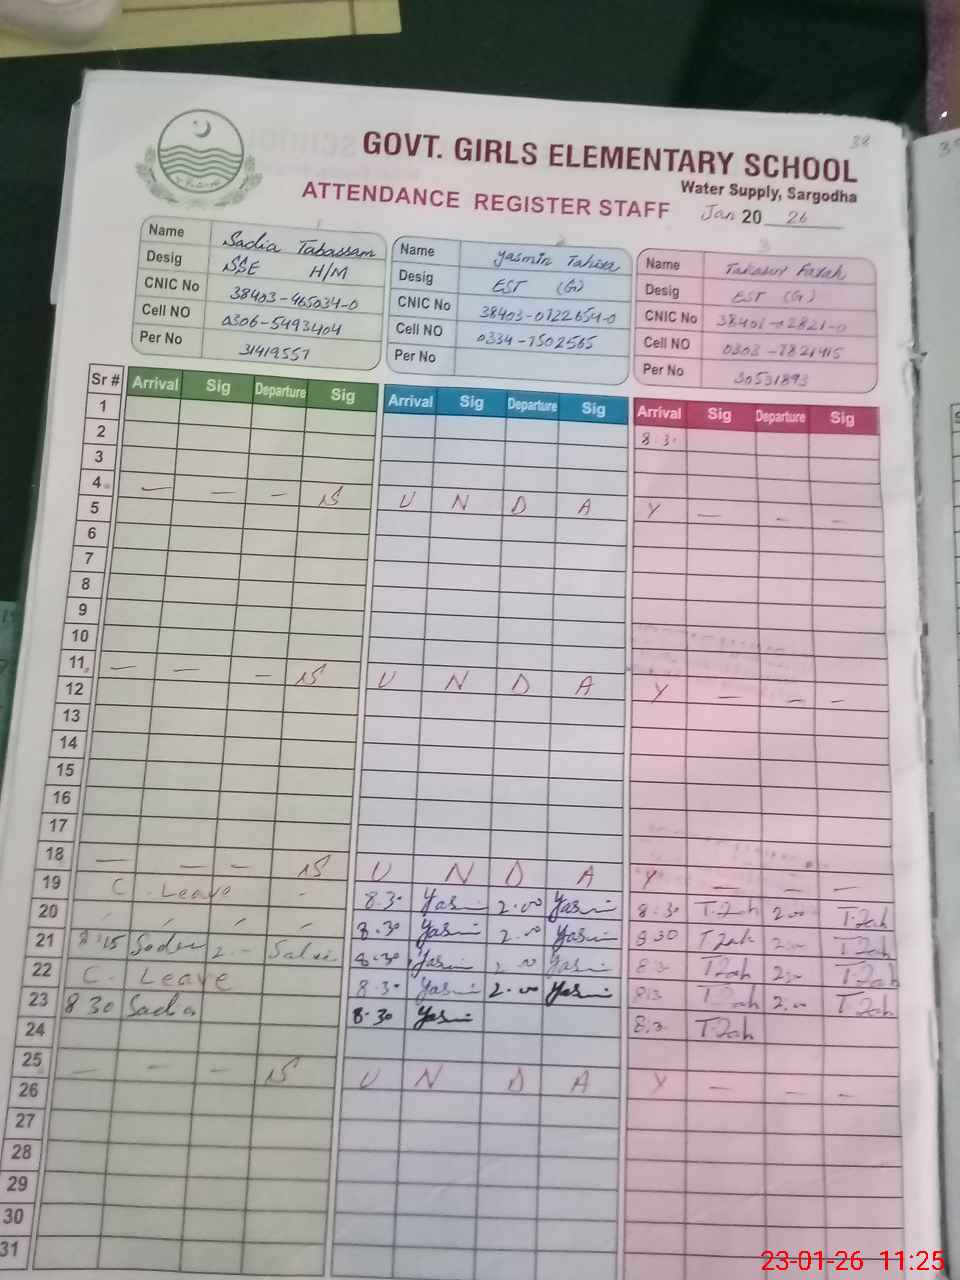 38
GOVT. GIRLS ELEMENTARY SCHOOL
Water Supply, Sargodha
ATTENDANCE REGISTER STAFF Jan 20 26
1
Name Sadia Tabassam
Desig SSE H/M
CNIC No 38403-465034-0
Cell NO 0306-5493404
Per No 31419557
2
Name Yasmin Tahira
Desig EST (G)
CNIC No 38403-0122654-0
Cell NO 0334-7502565
Per No
3
Name
Desig EST (G)
CNIC No 38401-02821-0
Cell NO 0303-7821415
Per No 30531893
Sr # Arrival Sig Departure Sig Arrival Sig Departure Sig Arrival Sig Departure Sig
1
2 8.3.
3
4 — — — S U N D A Y — — —
5
6
7
8
9
10
11 — — — S U N D A Y — — —
12
13
14
15
16
17
18 — — — S U N D A Y — — —
19 C. Leave - 8.30 2.00 8.30 T.Zah 2.00 T.Zah
20 8.30 2.00 830 T.Zah 2.00 T.Zah
21 8:15 2.- 8.30 2.00 8.3 T.Zah 2.00 T.Zah
22 C. Leave 8.30 2.00 8.3 T.Zah 2.00 T.Zah
23 8 30 Sadia 8.30 8.3 T.Zah
24
25 — — — S U N D A Y — — —
26
27
28
29
30
31
23-01-26 11:25